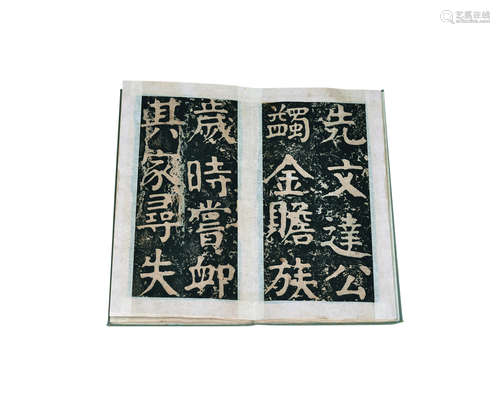 先文達公
蠲金贍族
歲時嘗卹
其家尋失